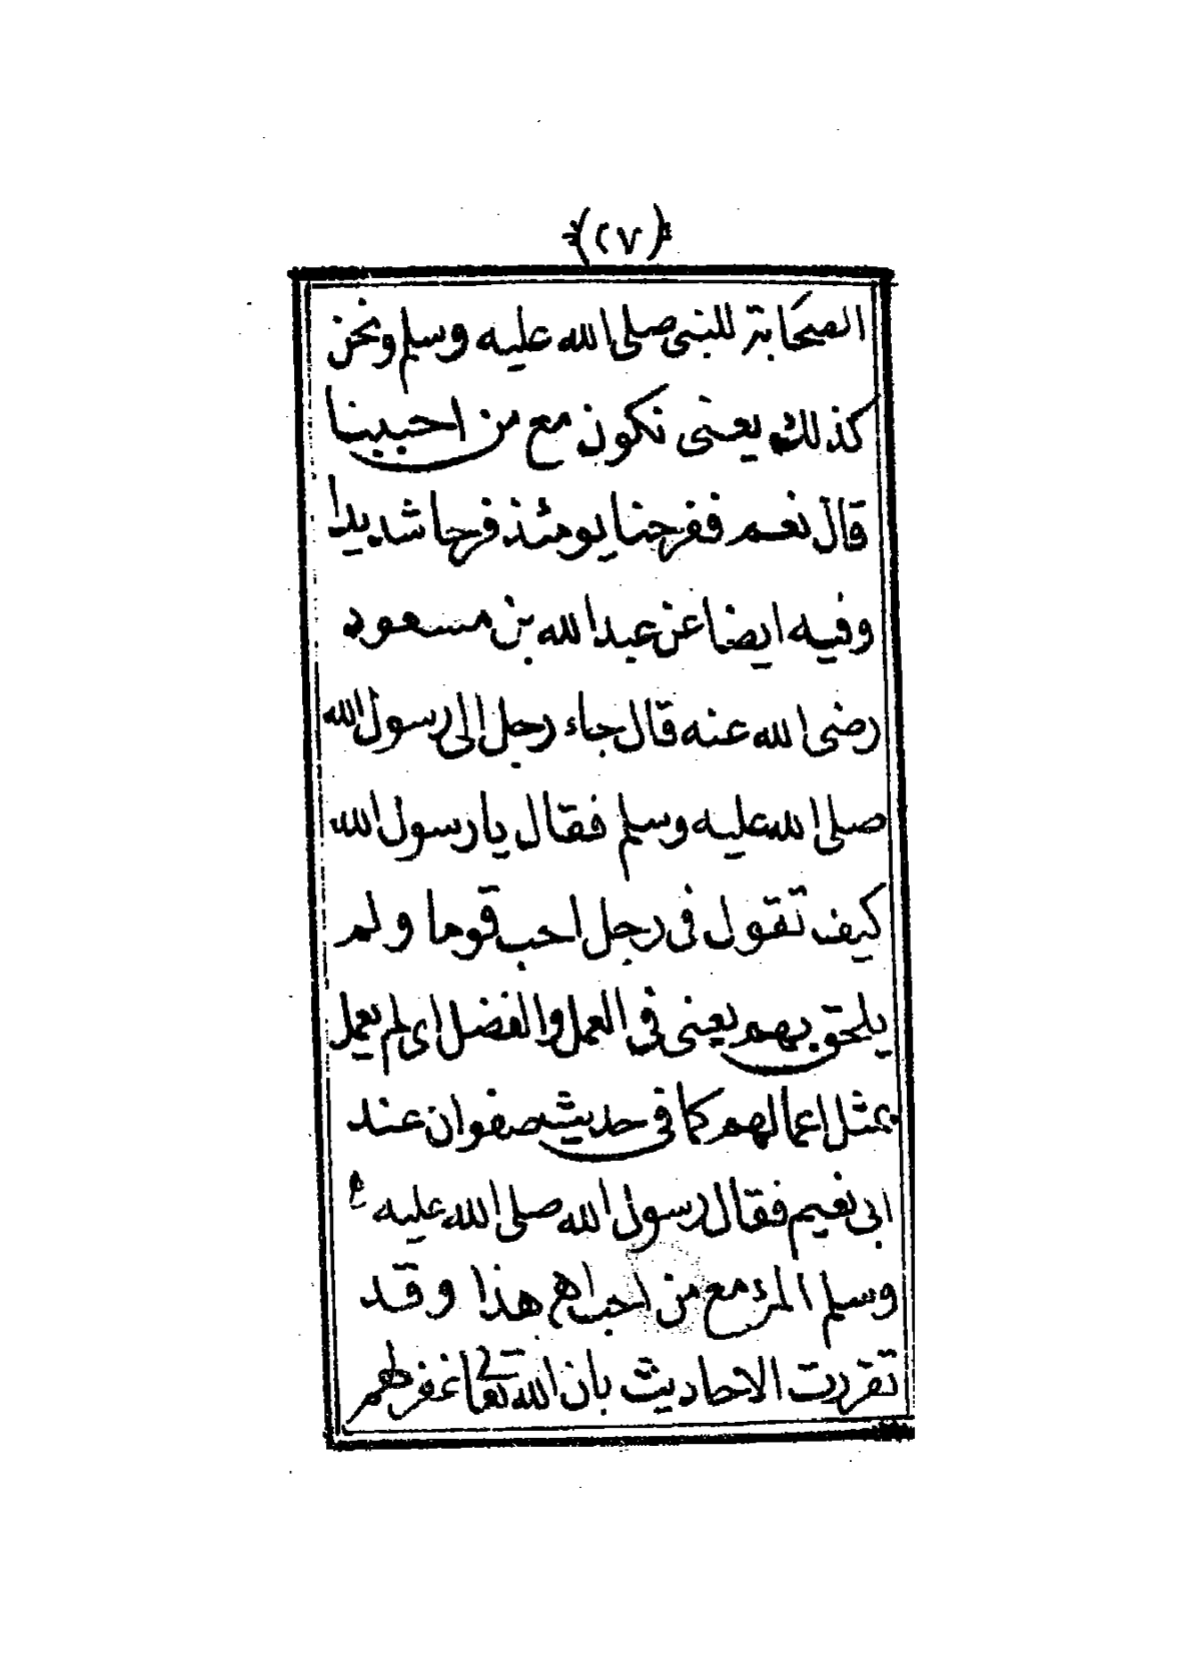 (٢٧)
الصحابة للنبى صلى الله عليه وسلم ونحن
كذلك يعنى نكون مع من احببنا
قال نعم ففرحنا يومئذ فرحا شديدا
وفيه ايضا عن عبد الله بن مسعود
رضى الله عنه قال جاء رجل الى رسول الله
صلى الله عليه وسلم فقال يا رسول الله
كيف تقول فى رجل احب قوما ولم
يلحق بهم يعنى فى العمل والفضل اى لم يعمل
بمثل اعمالهم كما فى حديث صفوان عند
ابى نعيم فقال رسول الله صلى الله عليه
وسلم المرء مع من احب اهم هذا وقد
تقررت الاحاديث بان الله تعالى غفر لهم